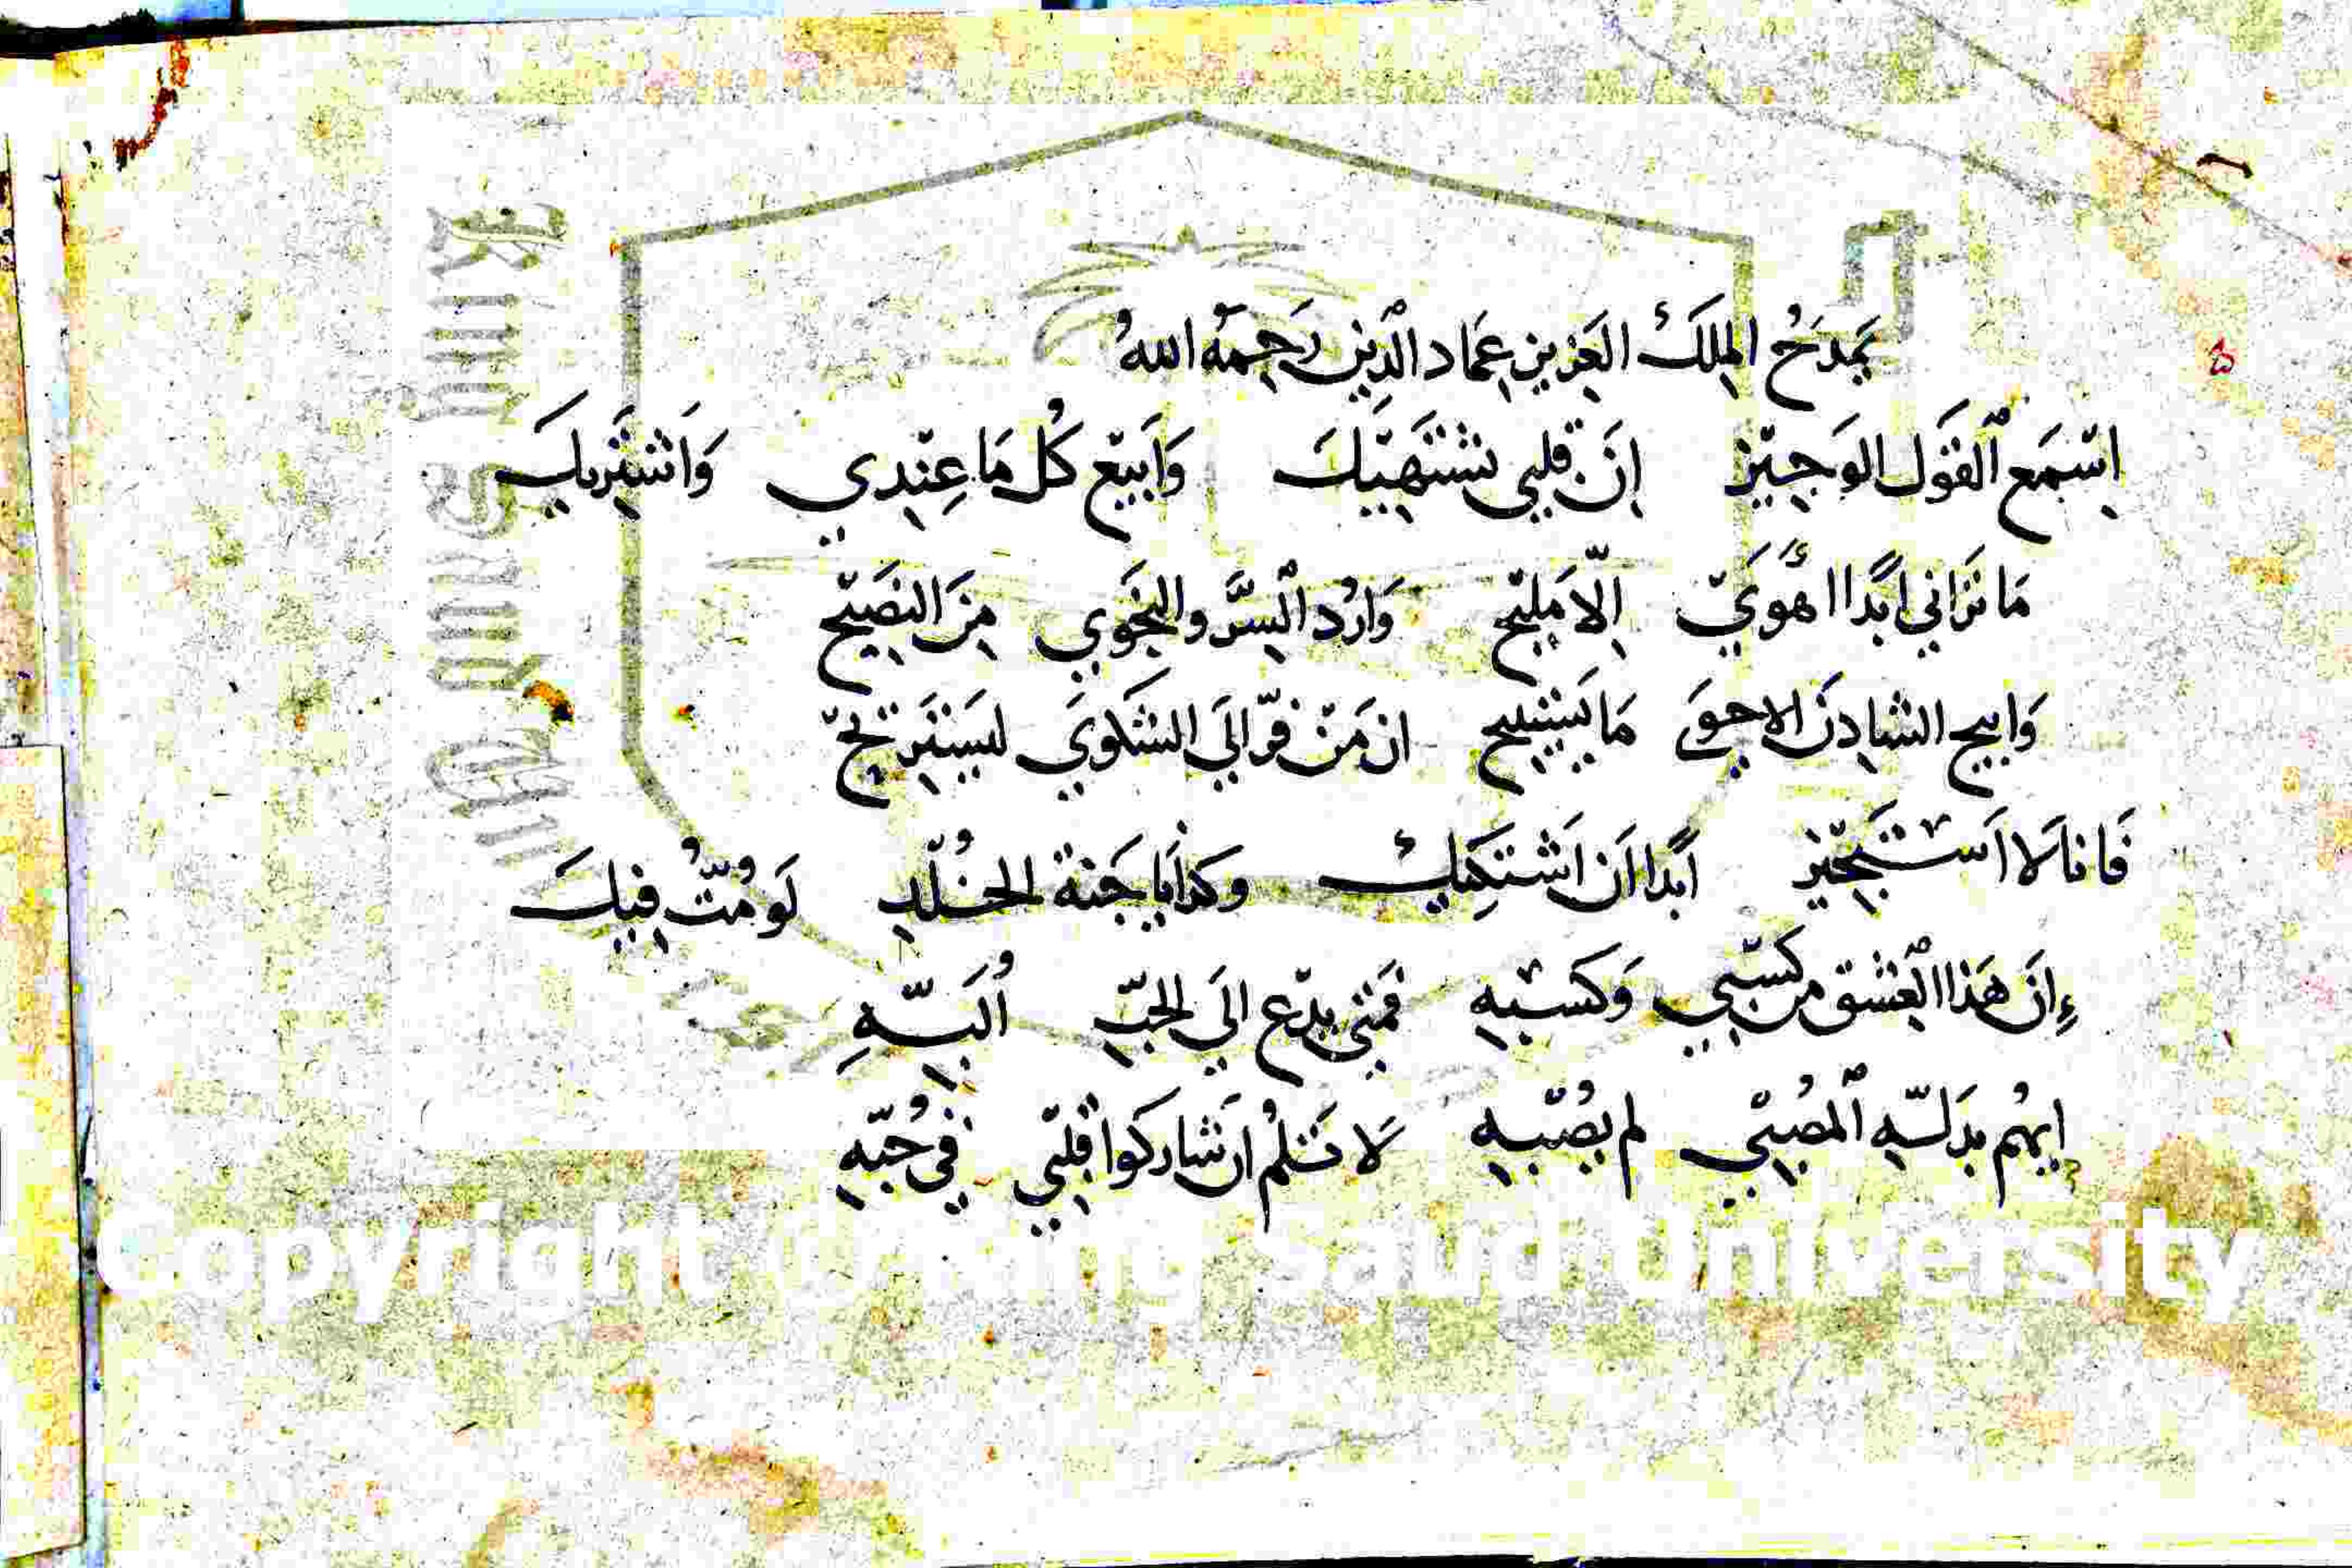 يمدَحُ الملِكَ العَزيز عِمَاد الدِّين رَحِمَهُ اللهُ
اسْتمَع القَول الوَجيْز إنَّ قلبي تشتَهيْكَ وَابيْع كُل مَا عِنْدِي وَاشتَريكَ
مَا تَرَاني ابدًا اهْوَيْ إلّا مَليْح وَارُد السرَّ والنجَوي مِنَ النصَيْح
وَابيح الشادِنَ الاحوَى مَا يَستبيح ان مَنْ فرّ الَي الشكوَي ليسَترَيحْ
فَانا لَا اسْتَجيْز ابَدًا ان اشتكِيكْ وكذا يَا جَنة الخُلْدِ لَو مُتُّ فيكَ
إنَّ هَذا العِشق من كسْبي وَكسْبِهِ فمَتي يدْع الَي الحبّ اُلَبّهِ
ايهُم بدَلّهِ المُصْبيْ لم يُصْبهِ لَا تَلُمْ ان شاركوا قلبْي في حُبّهِ
Copyright © King Saud University